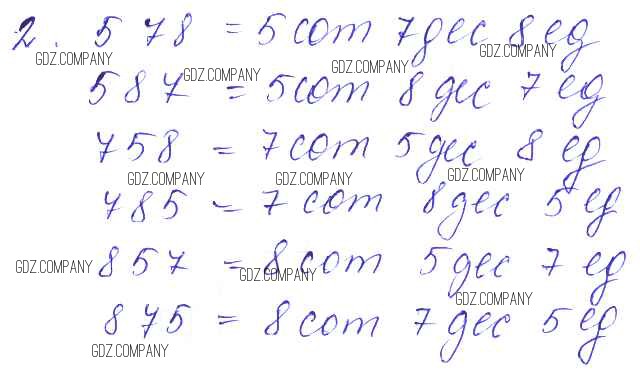 2. 578 = 5 сот 7 дес 8 ед
GDZ.COMPANY GDZ.COMPANY GDZ.COMPANY GDZ.COMPANY
587 = 5 сот 8 дес 7 ед
758 = 7 сот 5 дес 8 ед
GDZ.COMPANY GDZ.COMPANY GDZ.COMPANY
785 = 7 сот 8 дес 5 ед
GDZ.COMPANY 857 = 8 сот 5 дес 7 ед
GDZ.COMPANY GDZ.COMPANY
875 = 8 сот 7 дес 5 ед
GDZ.COMPANY